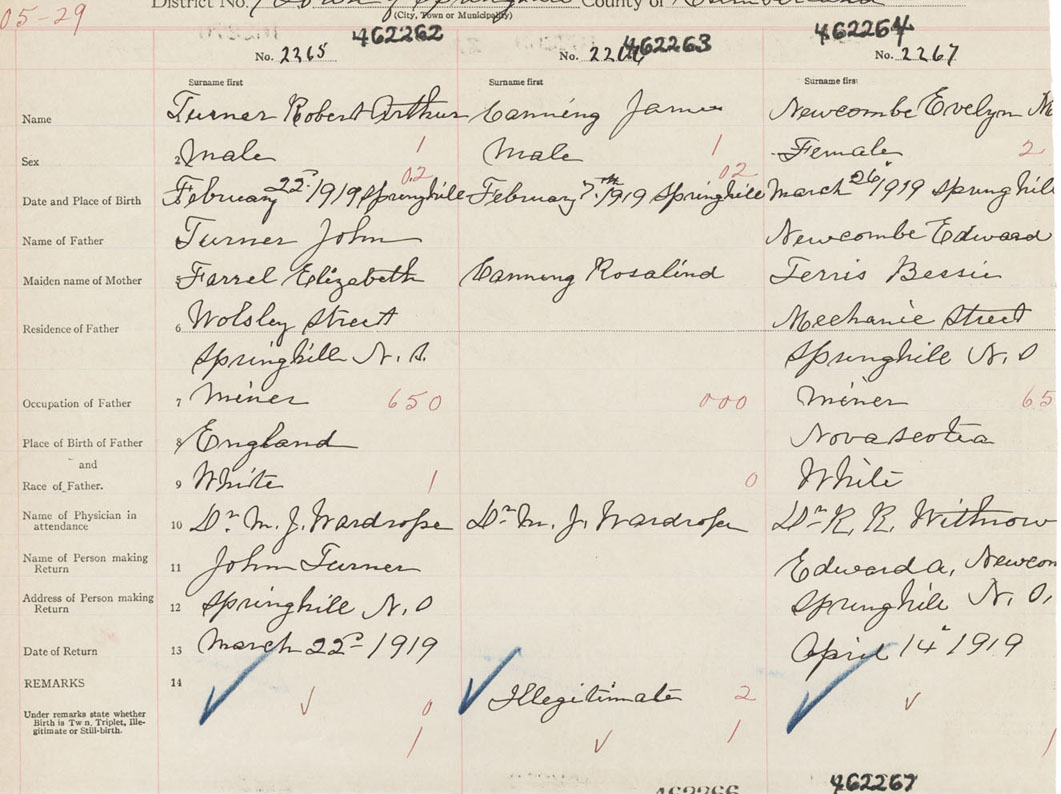 05-29
District No. 1 Town of Springhill County of Cumberland
(City, Town or Municipality)
462262 462263 462264
No. 2265 No. No. 2267
Surname first Surname first Surname first
Name Turner Robert Arthur Canning James Newcombe Evelyn M
Sex 2 Male 1 Male 1 Female 2
02 02
Date and Place of Birth February 22nd 1919 Springhill February 7th 1919 Springhill March 26 1919 Springhill
Name of Father Turner John Newcombe Edward
Maiden name of Mother 5 Farrel Elizabeth Canning Rosalind Terris Bessie
Residence of Father 6 Wolsley Street Mechanic Street
Springhill N.S. Springhill N.S
Occupation of Father 7 Miner 650 000 Miner 65
Place of Birth of Father 8 England Nova Scotia
and
Race of Father. 9 White 1 0 White
Name of Physician in
attendance 10 Dr M. J. Wardrope Dr M. J. Wardrope Dr R. K. Withrow
Name of Person making
Return 11 John Turner Edward A. Newcom
Address of Person making
Return 12 Springhill N.S Springhill N.S.
Date of Return 13 March 22nd 1919 April 14 1919
REMARKS 14 Illegitimate 2
Under remarks state whether
Birth is Twn, Triplet, Ille-
gitimate or Still-birth.
0
1 1 1
462266 462267